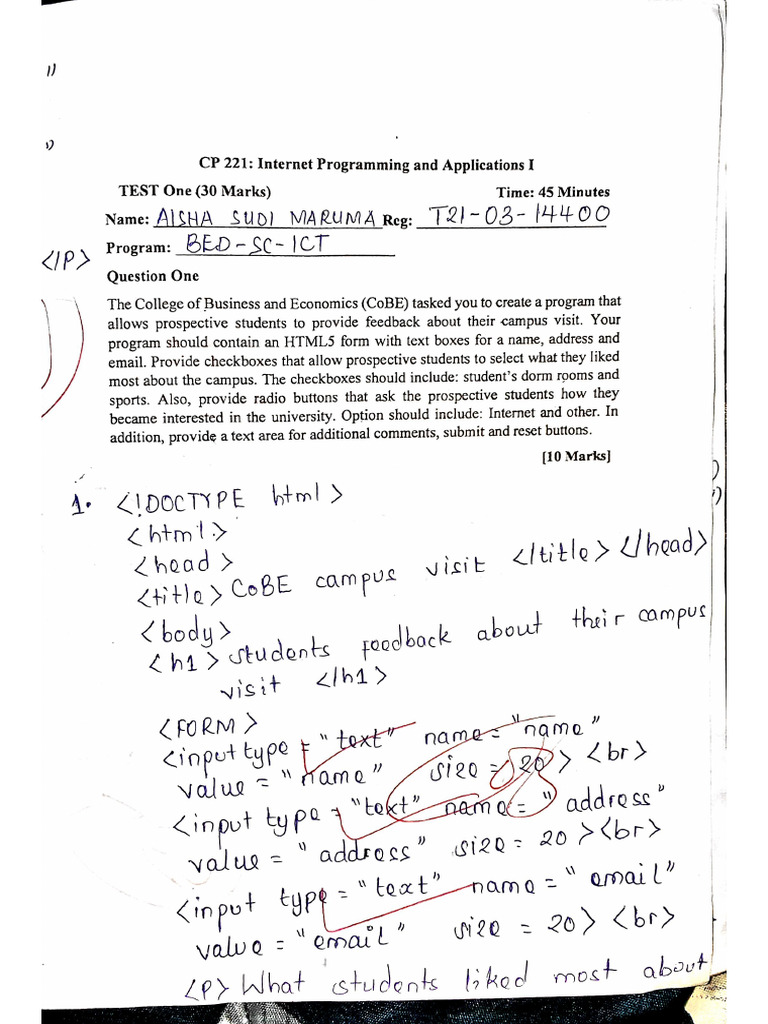 1)
CP 221: Internet Programming and Applications I
TEST One (30 Marks) Time: 45 Minutes
Name: AISHA SUDI MARUMA Reg: T21-03-14400
Program: BED-SC-ICT
</P>
Question One
The College of Business and Economics (CoBE) tasked you to create a program that
allows prospective students to provide feedback about their campus visit. Your
program should contain an HTML5 form with text boxes for a name, address and
email. Provide checkboxes that allow prospective students to select what they liked
most about the campus. The checkboxes should include: student's dorm rooms and
sports. Also, provide radio buttons that ask the prospective students how they
became interested in the university. Option should include: Internet and other. In
addition, provide a text area for additional comments, submit and reset buttons.
[10 Marks]
1. <!DOCTYPE html>
<html>
<head>
<title> CoBE campus visit </title> </head>
<body>
<h1> students feedback about their campus
visit </h1>
<FORM>
<input type = "text" name = "name"
value = "name" size = 20> <br>
<input type = "text" name = "address"
value = "address" size = 20 ><br>
<input type = "text" name = "email"
value = "email" size = 20> <br>
<P> What students liked most about